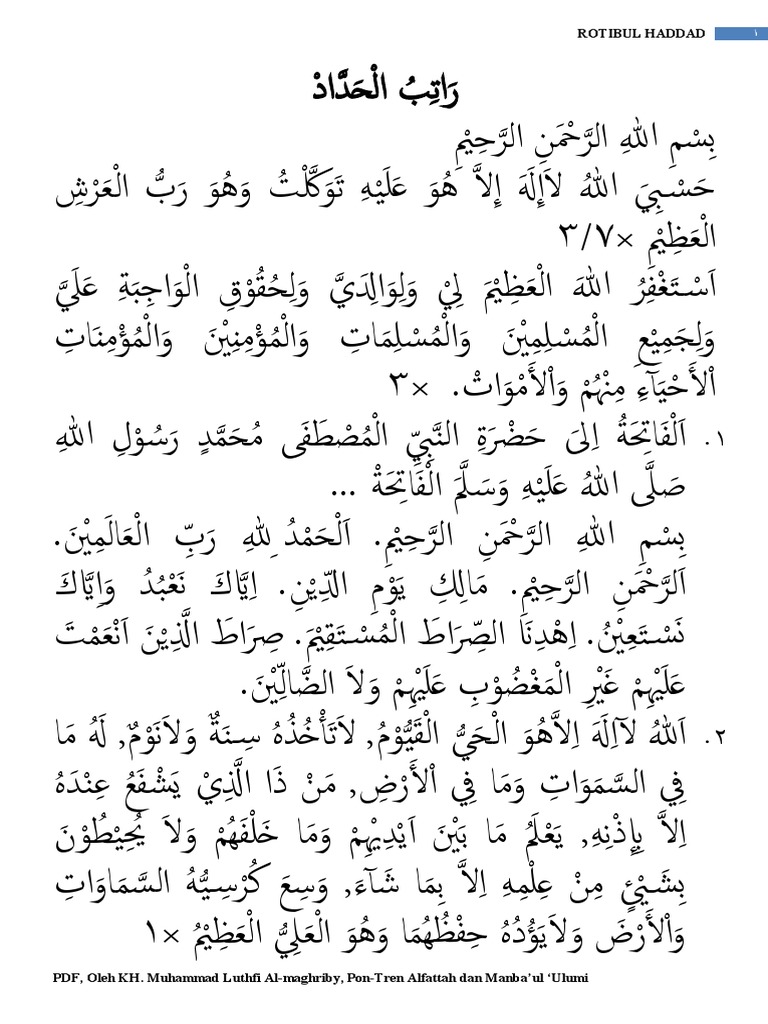 ROTIBUL HADDAD ١
رَاتِبُ الْحَدَّادْ
بِسْمِ اللهِ الرَّحْمَنِ الرَّحِيْمِ
حَسْبِيَ اللهُ لاَإِلَهَ إِلاَّ هُوَ عَلَيْهِ تَوَكَّلْتُ وَهُوَ رَبُّ الْعَرْشِ
الْعَظِيْمِ ×٣/٧
اَسْتَغْفِرُ اللهَ الْعَظِيْمَ لِيْ وَلِوَالِدَيَّ وَلِحُقُوْقِ الْوَاجِبَةِ عَلَيَّ
وَلِجَمِيْعِ الْمُسْلِمِيْنَ وَالْمُسْلِمَاتِ وَالْمُؤْمِنِيْنَ وَالْمُؤْمِنَاتِ
اْلأَحْيَآءِ مِنْهُمْ وَاْلأَمْوَاتْ. ×٣
١. اَلْفَاتِحَةُ اِلىَ حَضْرَةِ النَّبِيِّ الْمُصْطَفَى مُحَمَّدٍ رَسُوْلِ اللهِ
صَلَّى اللهُ عَلَيْهِ وَسَلَّمَ الْفَاتِحَةْ ...
بِسْمِ اللهِ الرَّحْمَنِ الرَّحِيْمِ. اَلْحَمْدُ ِللهِ رَبِّ الْعَالَمِيْنَ.
اَلرَّحْمَنِ الرَّحِيْمِ. مَالِكِ يَوْمِ الدِّيْنِ. اِيَّاكَ نَعْبُدُ وَاِيَّاكَ
نَسْتَعِيْنُ. اِهْدِنَا الصِّرَاطَ الْمُسْتَقِيْمَ. صِرَاطَ الَّذِيْنَ اَنْعَمْتَ
عَلَيْهِمْ غَيْرِ الْمَغْضُوْبِ عَلَيْهِمْ وَلاَ الضَّالِّيْنَ.
٢. اَللهُ لآاِلَهَ اِلاَّهُوَ الْحَيُّ الْقَيُّوْمُ, لاَتَأْخُذُهُ سِنَةٌ وَلاَنَوْمٌ, لَهُ مَا
فِي السَّمَوَاتِ وَمَا فِي اْلأَرْضِ, مَنْ ذَا الَّذِيْ يَشْفَعُ عِنْدَهُ
اِلاَّ بِإِذْنِهِ, يَعْلَمُ مَا بَيْنَ اَيْدِيْهِمْ وَمَا خَلْفَهُمْ وَلاَ يُحِيْطُوْنَ
بِشَيْئٍ مِنْ عِلْمِهِ اِلاَّ بِمَا شَآءَ, وَسِعَ كُرْسِيُّهُ السَّمَاوَاتِ
وَاْلأَرْضَ وَلاَيَؤُدُهُ حِفْظُهُمَا وَهُوَ الْعَلِيُّ الْعَظِيْمُ ×١
PDF, Oleh KH. Muhammad Luthfi Al-maghriby, Pon-Tren Alfattah dan Manba’ul ‘Ulumi